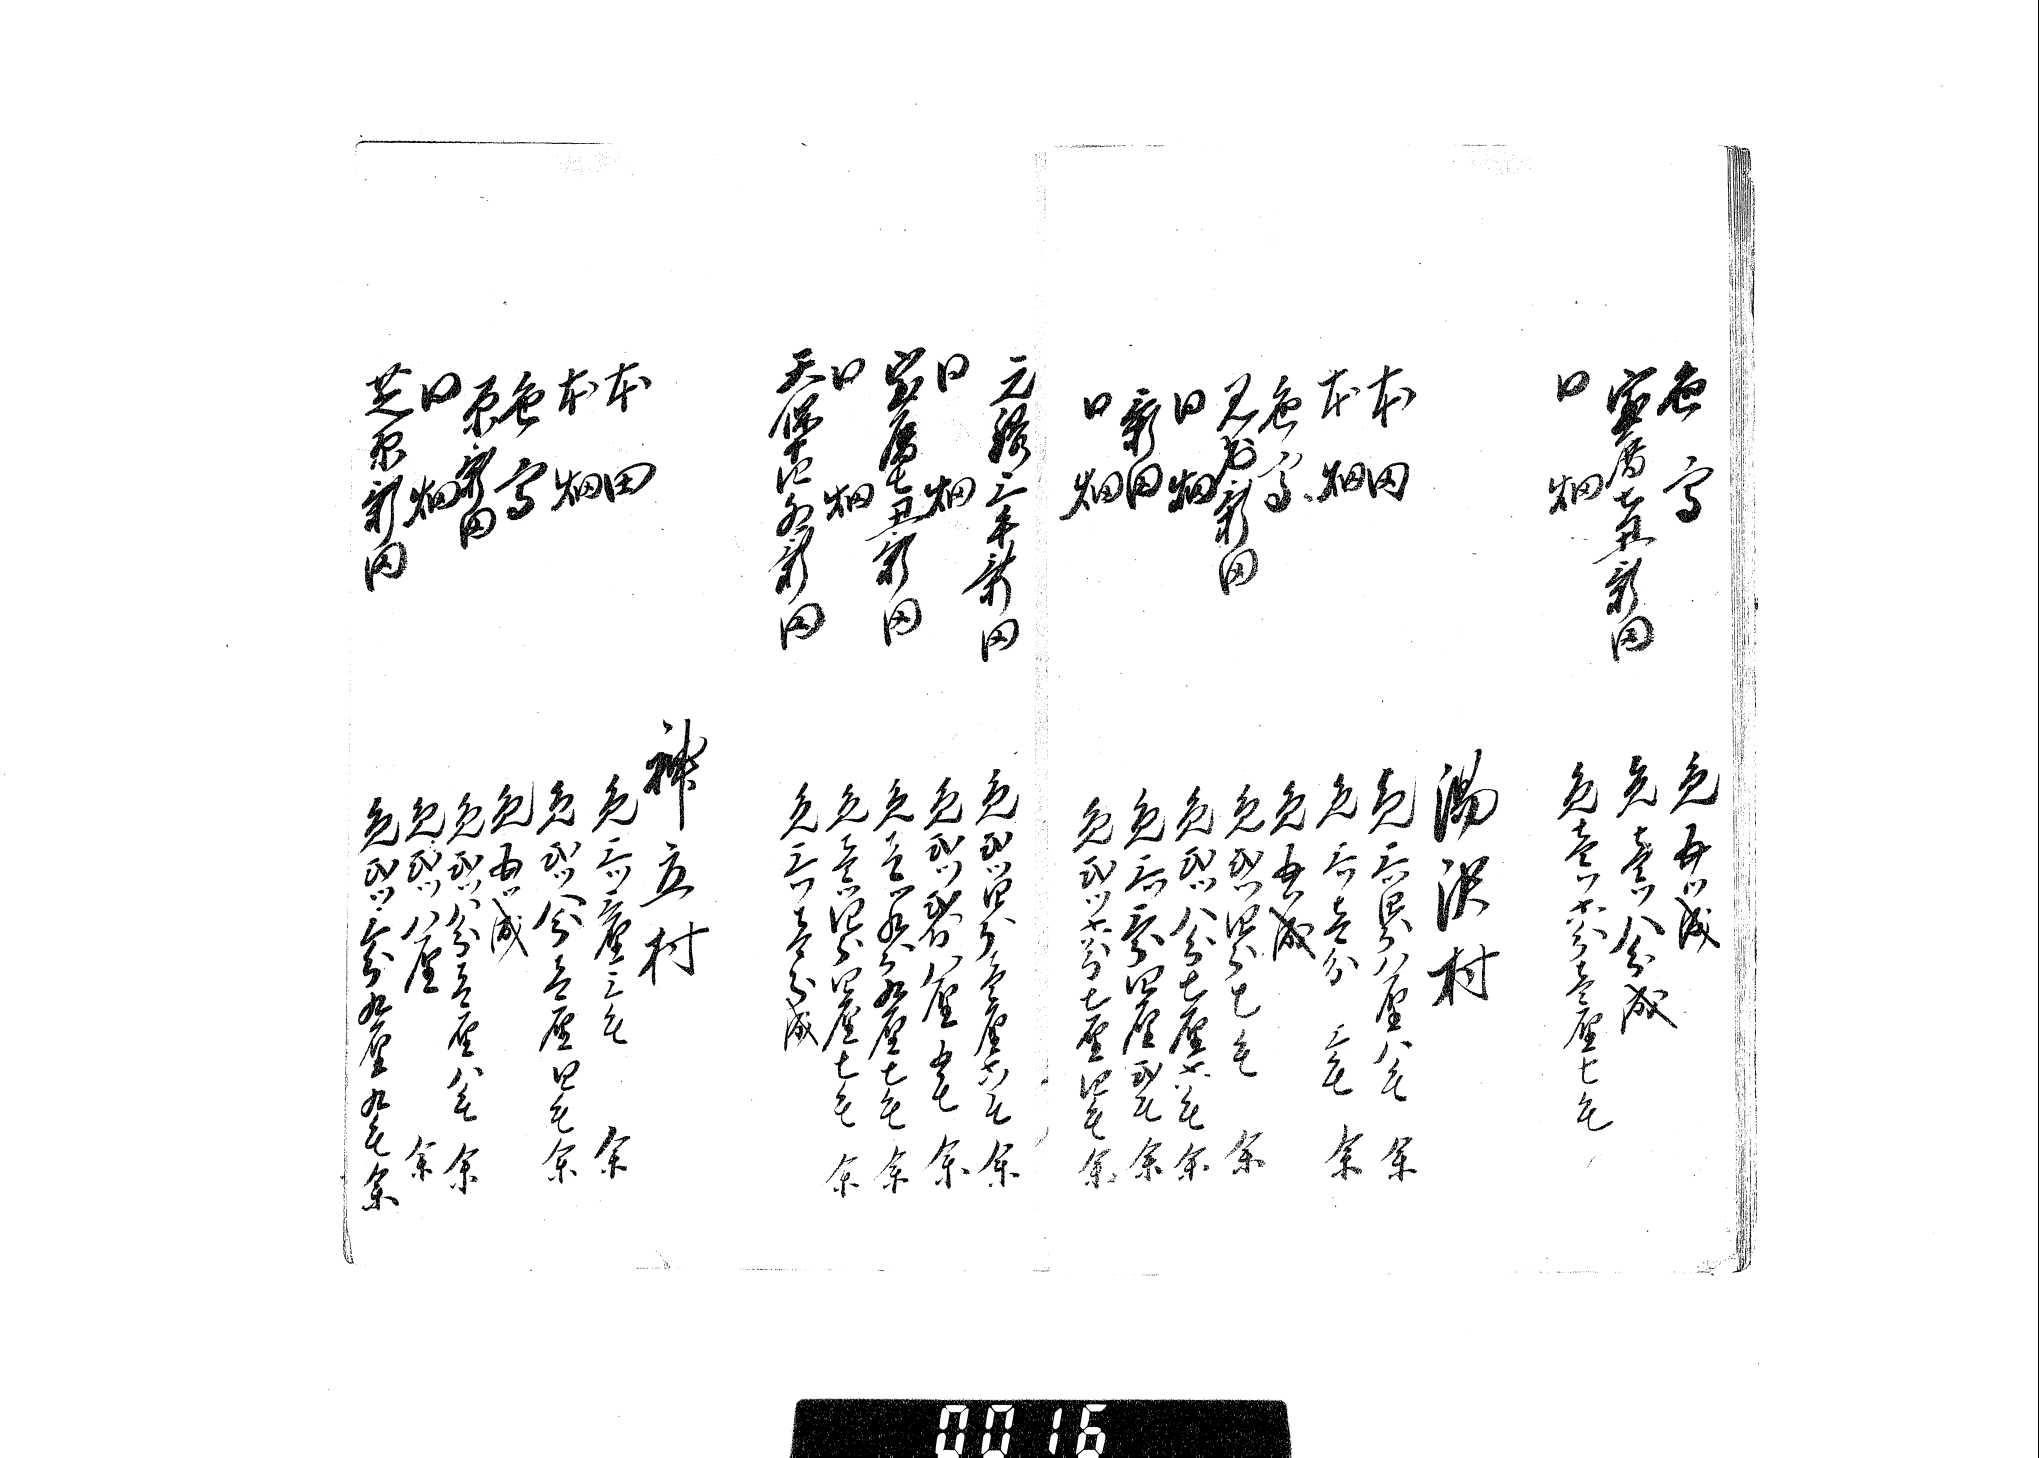 色高 免五ツ成
宝暦七丑新田 免壱ツ八分成
同畑 免壱ツ六分壱厘七毛
湯沢村
本田 免三ツ四分八厘八毛余
本畑 免三ツ壱分三毛余
色高 免五ツ成
見出新田 免弐ツ四分七毛余
同畑 免弐ツ八分七厘六毛余
新田 免三ツ三分四厘弐毛余
同畑 免弐ツ六分七厘四毛余
元禄三午新田 免弐ツ四分壱厘六毛余
同畑 免弐ツ弐分八厘五毛余
宝暦七丑新田 免壱ツ九分九厘七毛余
同畑 免壱ツ四分四厘七毛余
天保十四卯新田 免三ツ壱分成
神立村
本田 免三ツ三厘三毛余
本畑 免弐ツ八分壱厘四毛余
色高 免五ツ成
原新田 免弐ツ八分壱厘八毛余
同畑 免弐ツ八厘余
芝原新田 免弐ツ三分九厘九毛余
0016